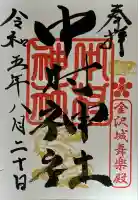 奉拝
金沢城舞楽殿
中村神社
令和五年八月二十日